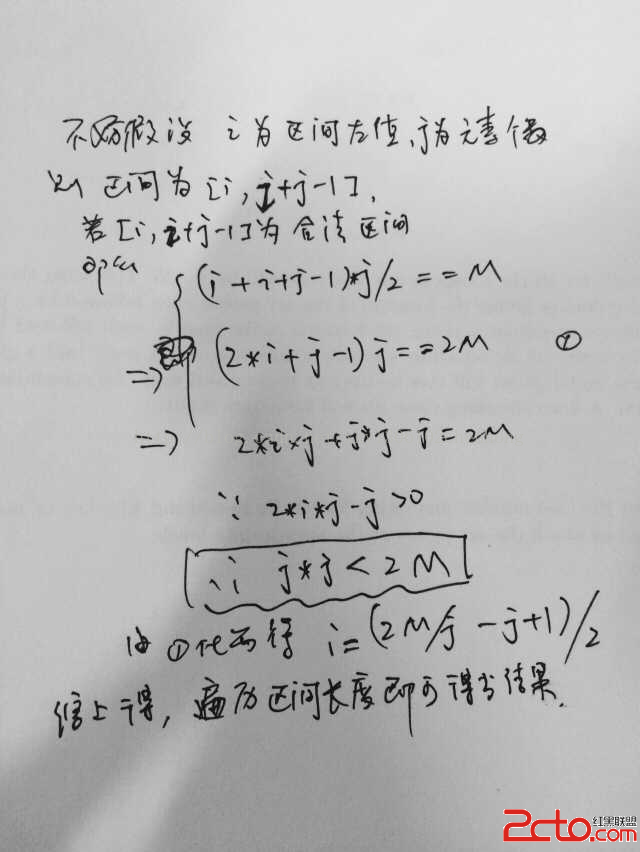 不妨假设 i为区间左值,j为元素个数
则 区间为[i,i+j-1],
若[i,i+j-1]为合法区间
那么
(i+i+j-1)*j/2==M
(2*i+j-1)j==2M ①
=>
=> 2*i*j+j*j-j=2M
∵ 2*i*j-j>0
∴ j*j<2M
由①化不得 i=(2M/j-j+1)/2
综上得,遍历区间长度即可得出结果.
红黑联盟
2cto.com